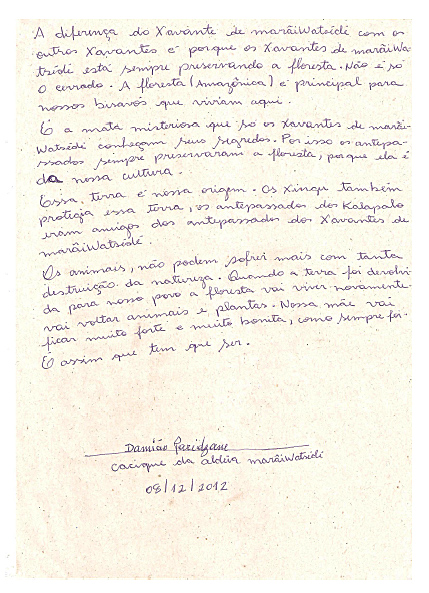 A diferença do Xavante de marãiWatsédé com os
outros Xavantes é porque os Xavantes de marãiWa-
tsédé está sempre preservando a floresta. Não é só
o cerrado. A floresta (Amazônica) é principal para
nossos bisavós que viviam aqui.
É a mata misteriosa que só os Xavantes de marãi-
Watsédé conheçam seus segredos. Por isso os antepa-
ssados sempre preservaram a floresta, porque ela é
da nossa cultura.
Essa terra é nossa origem. Os Xingu também
protegia essa terra, os antepassados dos Kalapalo
eram amigos dos antepassados dos Xavantes de
marãiWatsédé.
Os animais, não podem sofrer mais com tanta
destruição da natureza. Quando a terra foi devolvi-
da para nosso povo a floresta vai viver novamente
vai voltar animais e plantas. Nossa mãe vai
ficar muito forte e muito bonita, como sempre foi.
É assim que tem que ser.
Damião Paridzane
cacique da aldeia marãiWatsédé
08/12/2012